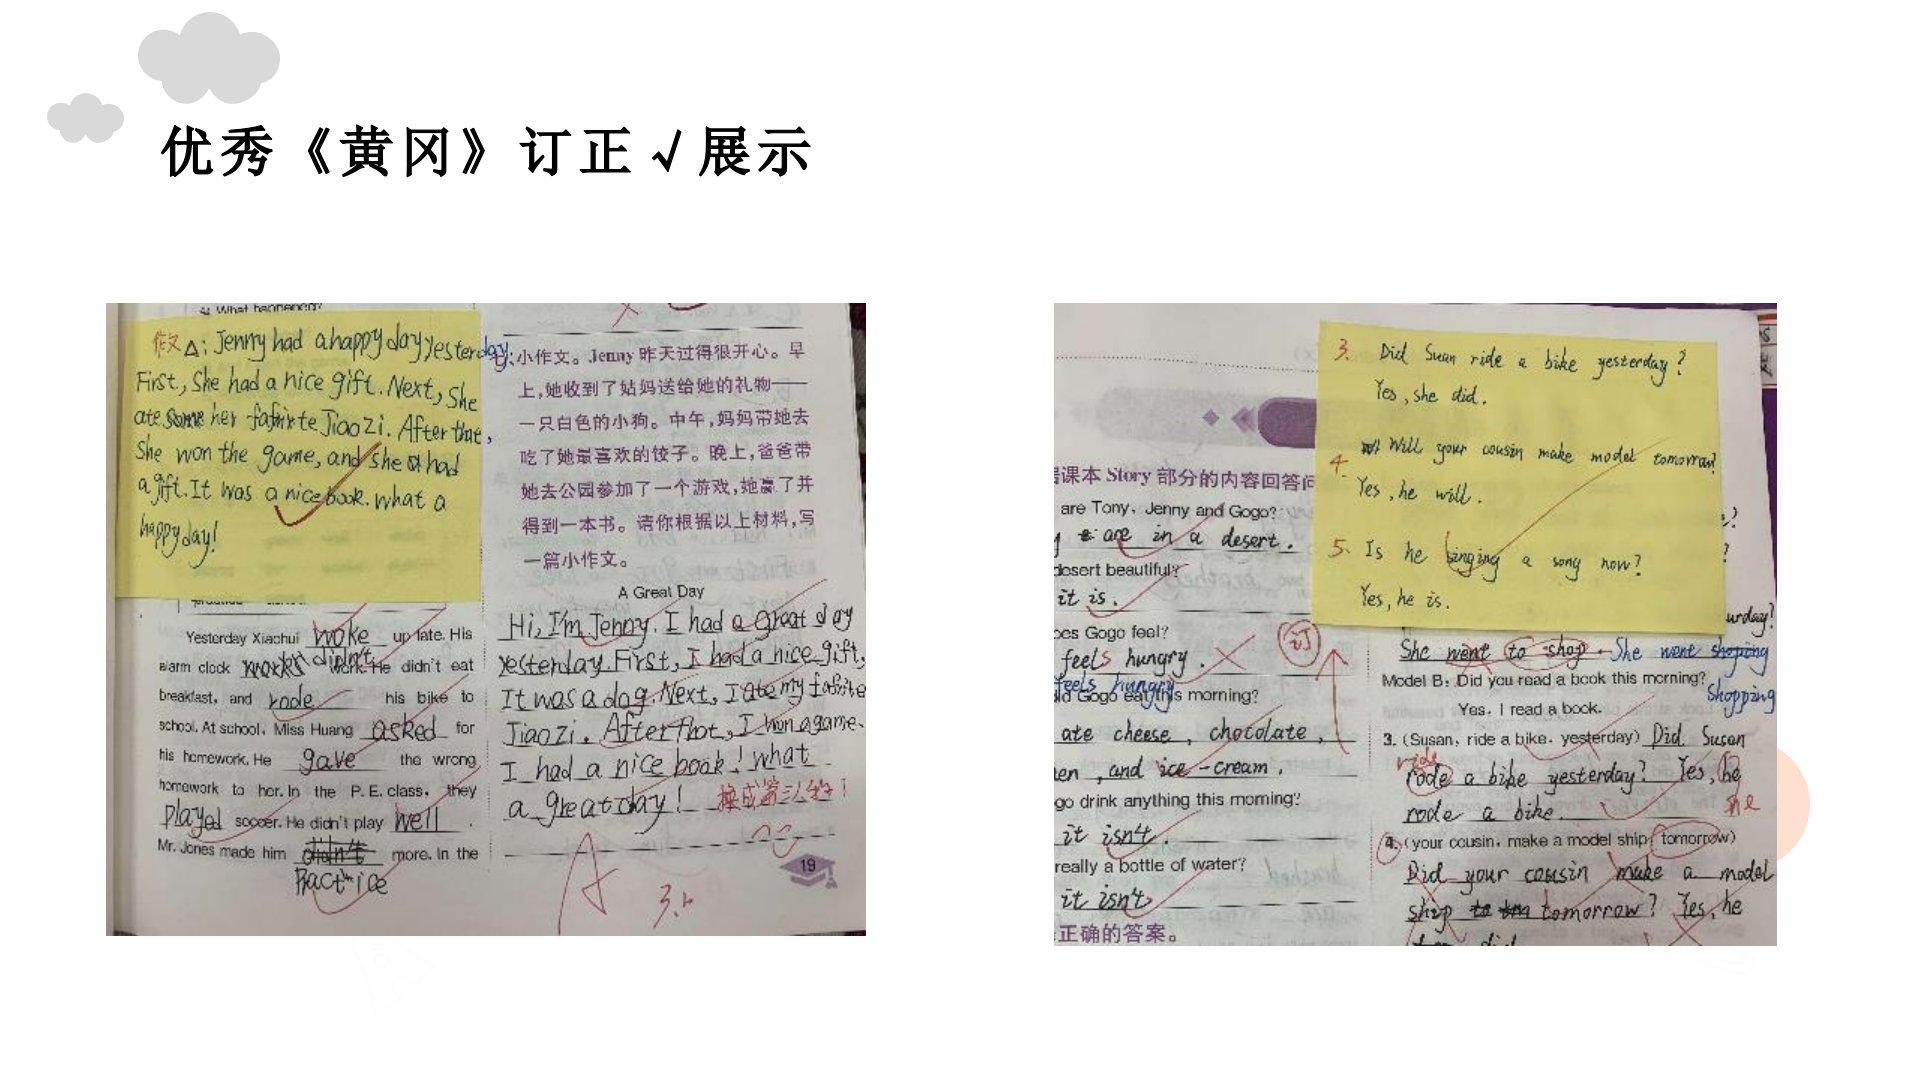 优秀《黄冈》订正√展示
4. What happened?
作文△: Jenny had a happy day yesterday.
First, She had a nice gift. Next, She
ate some her fafirte Jiaozi. After that,
She won the game, and she had
a gift. It was a nice book. What a
happy day!
小作文。Jenny 昨天过得很开心。早
上,她收到了姑妈送给她的礼物——
一只白色的小狗。中午,妈妈带她去
吃了她最喜欢的饺子。晚上,爸爸带
她去公园参加了一个游戏,她赢了并
得到一本书。请你根据以上材料,写
一篇小作文。
A Great Day
Hi, I'm Jenny. I had a Great day
yesterday. First, I had a nice gift,
It was a dog. Next, I ate my fafirte
Jiaozi. After that, I won a game.
I had a nice book! what
a great day! 换成第三人称!
A
19
Yesterday Xiaohui woke up late. His
alarm clock didn't work. He didn't eat
breakfast, and rode his bike to
school. At school, Miss Huang asked for
his homework. He gave the wrong
homework to her. In the P.E. class, they
played soccer. He didn't play well.
Mr. Jones made him more. In the
Practice
3. Did Suan ride a bike yesterday?
Yes, she did.
4. Will your cousin make model tomorrow?
Yes, he will.
5. Is he singing a song now?
Yes, he is.
课本 Story 部分的内容回答问
are Tony, Jenny and Gogo?
are in a desert.
desert beautiful?
it is.
oes Gogo feel?
feels hungry.
feels hungry
id Gogo eat this morning?
ate cheese, chocolate,
en, and ice-cream.
go drink anything this morning?
it isn't.
really a bottle of water?
it isn't
正确的答案。
订
urday?
She went to shop. She went shoping
shopping
Model B: Did you read a book this morning?
Yes, I read a book.
3. (Susan, ride a bike, yesterday) Did Susan
ride
rode a bike yesterday? Yes, he
rode a bike.
4. (your cousin, make a model ship, tomorrow)
Did your cousin make a model
ship tomorrow? Yes, he